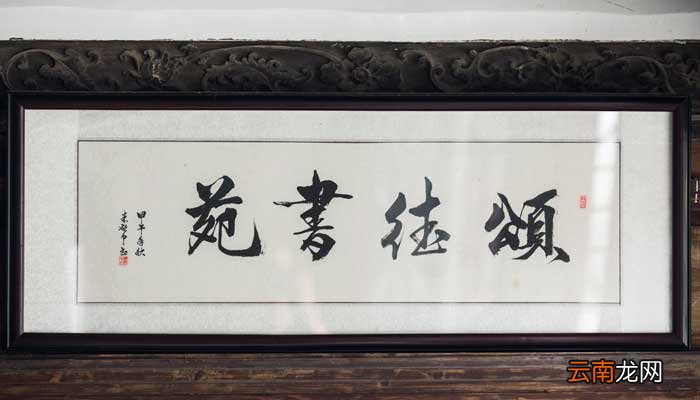 頌德書苑
甲午年秋
云南龙网